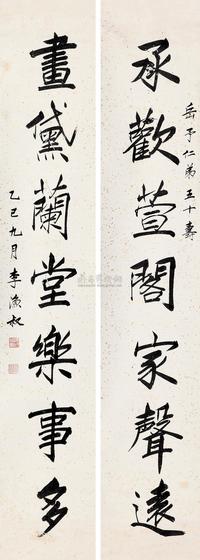 承歡萱閣家聲遠
岳予仁弟五十壽
畫黛蘭堂樂事多
乙巳九月李漁叔